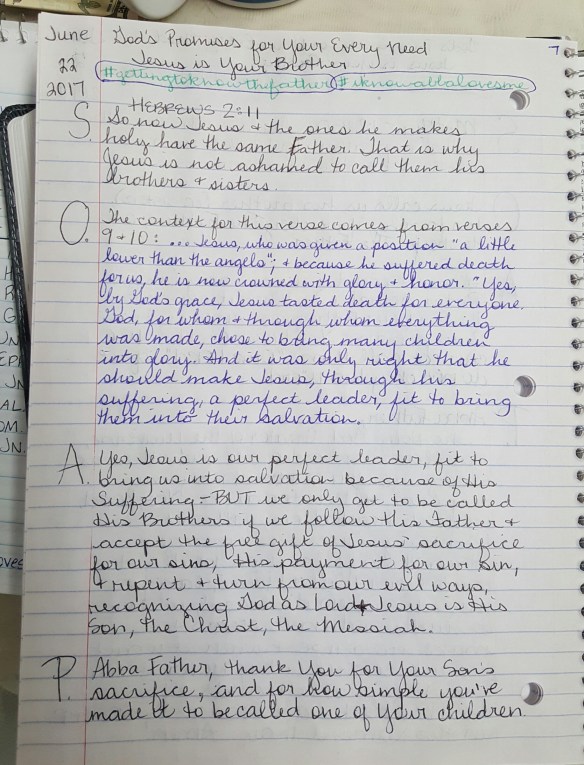 June God's Promises for Your Every Need 7
22 Jesus is Your Brother
2017 #gettingtoknowthyfather #iknowabbalovesme
HEBREWS 2:11
S. So now Jesus + the ones he makes
holy have the same Father. That is why
Jesus is not ashamed to call them his
brothers + sisters.
O. The context for this verse comes from verses
9+10: ... Jesus, who was given a position "a little
lower than the angels"; + because he suffered death
for us, he is now crowned with glory + honor. "Yes,
by God's grace, Jesus tasted death for everyone.
God, for whom + through whom everything
was made, chose to bring many children
into glory. And it was only right that he
should make Jesus, through his
suffering, a perfect leader, fit to bring
them into their salvation.
A. Yes, Jesus is our perfect leader, fit to
bring us into salvation because of His
Suffering - BUT we only get to be called
His Brothers if we follow His Father +
accept the free gift of Jesus' sacrifice
for our sins, His payment for our sin,
+ repent + turn from our evil ways,
recognizing God as Lord + Jesus is His
Son, the Christ, the Messiah.
P. Abba Father, thank You for Your Son's
sacrifice, and for how simple you've
made it to be called one of Your children.